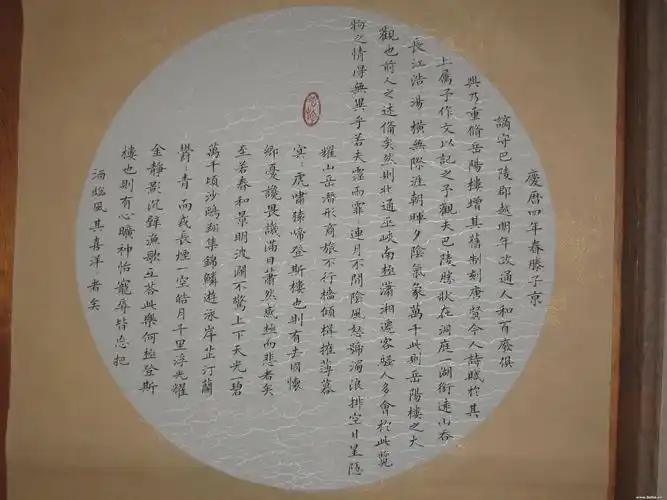 慶曆四年春滕子京
謫守巴陵郡越明年政通人和百廢俱
興乃重脩岳陽樓增其舊制刻唐賢今人詩賦於其
上属予作文以記之予觀夫巴陵勝狀在洞庭一湖銜遠山吞
長江浩〻湯〻橫無際涯朝暉夕陰氣象萬千此則岳陽樓之大
觀也前人之述備矣然則北通巫峽南極瀟湘遷客騷人多會於此覽
物之情得無異乎若夫霪雨霏〻連月不開陰風怒號濁浪排空日星隱
耀山岳潛形商旅不行檣傾楫摧薄暮
冥〻虎嘯猿啼登斯樓也則有去國懷
鄉憂讒畏譏滿目蕭然感極而悲者矣
至若春和景明波瀾不驚上下天光一碧
萬千頃沙鷗翔集錦鱗遊泳岸芷汀蘭
欝〻青〻而或長煙一空皓月千里浮光耀
金靜影沉璧漁歌互荅此樂何極登斯
樓也則有心曠神怡寵辱皆忘把
酒臨風其喜洋〻者矣